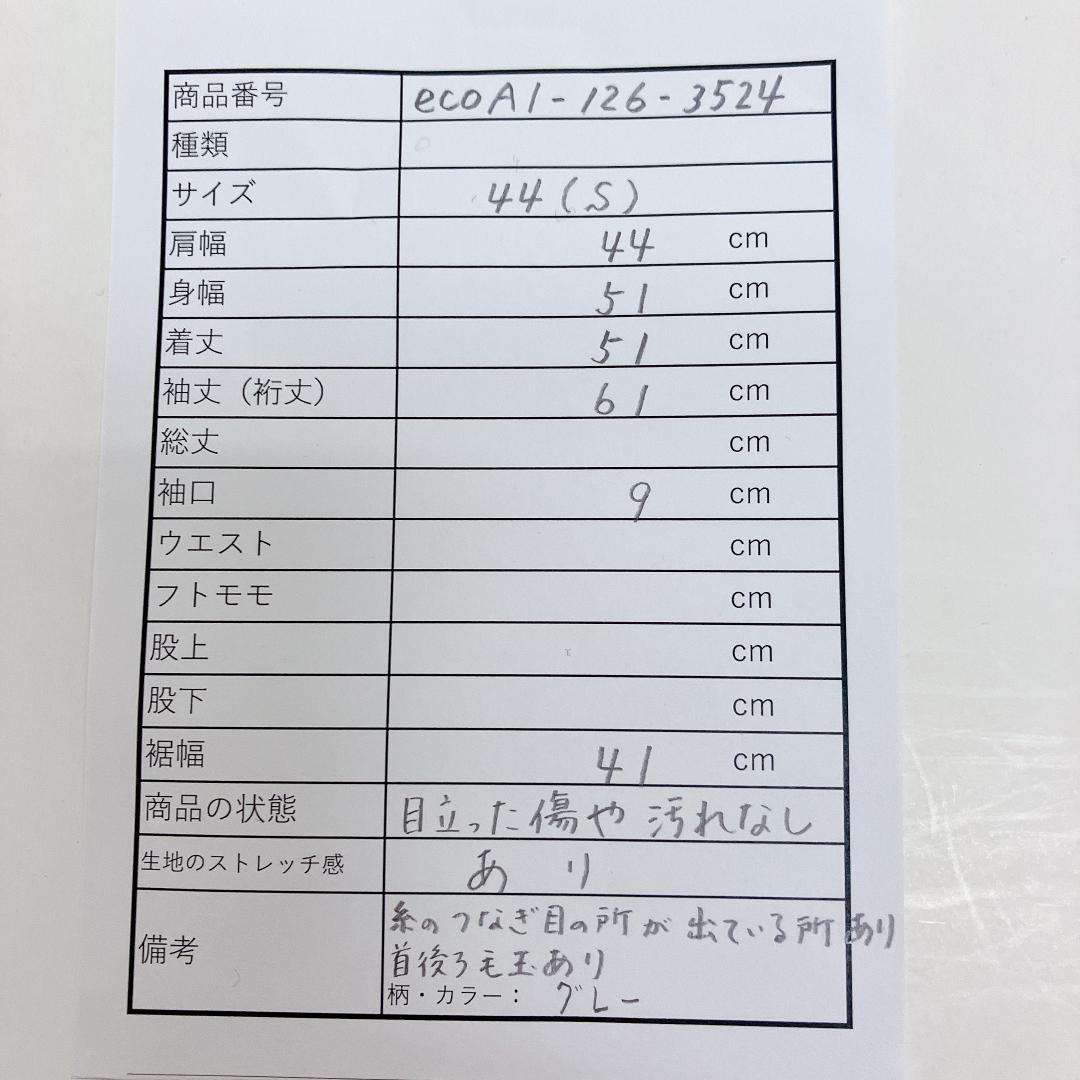 商品番号 ecoA1-126-3524
種類
サイズ 44(S)
肩幅 44 cm
身幅 51 cm
着丈 51 cm
袖丈（裄丈） 61 cm
総丈 cm
袖口 9 cm
ウエスト cm
フトモモ cm
股上 cm
股下 cm
裾幅 41 cm
商品の状態 目立った傷や汚れなし
生地のストレッチ感 あり
備考
糸のつなぎ目の所が出ている所あり
首後ろ毛玉あり
柄・カラー： グレー